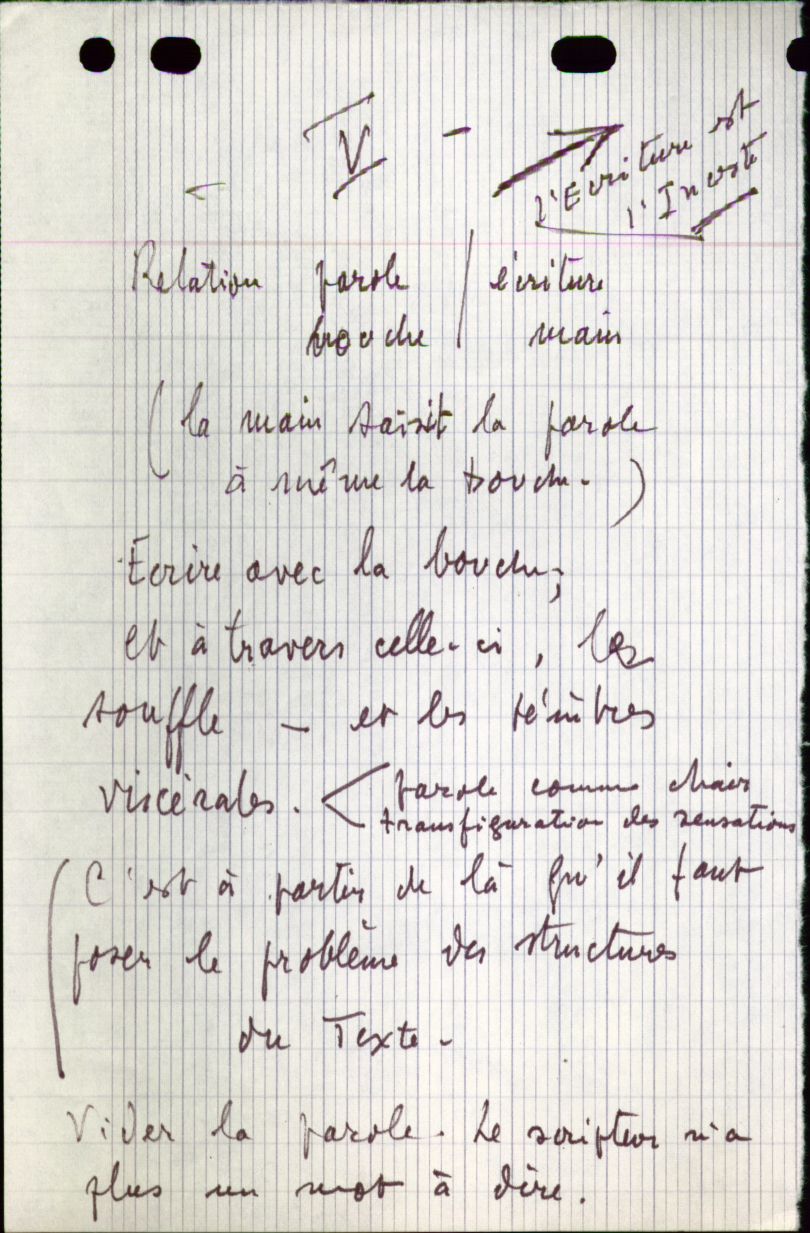 V -
l'Ecriture est
l'Inceste
Relation parole / écriture
bouche main
(la main saisit la parole
à même la bouche.)
Ecrire avec la bouche;
et à travers celle-ci, les
souffle — et les ténèbres
viscérales. < parole comme chair
transfiguration des sensations
(C'est à partir de là qu'il faut
poser le problème des structures
du Texte.
Vider la parole. Le scripteur n'a
plus un mot à dire.